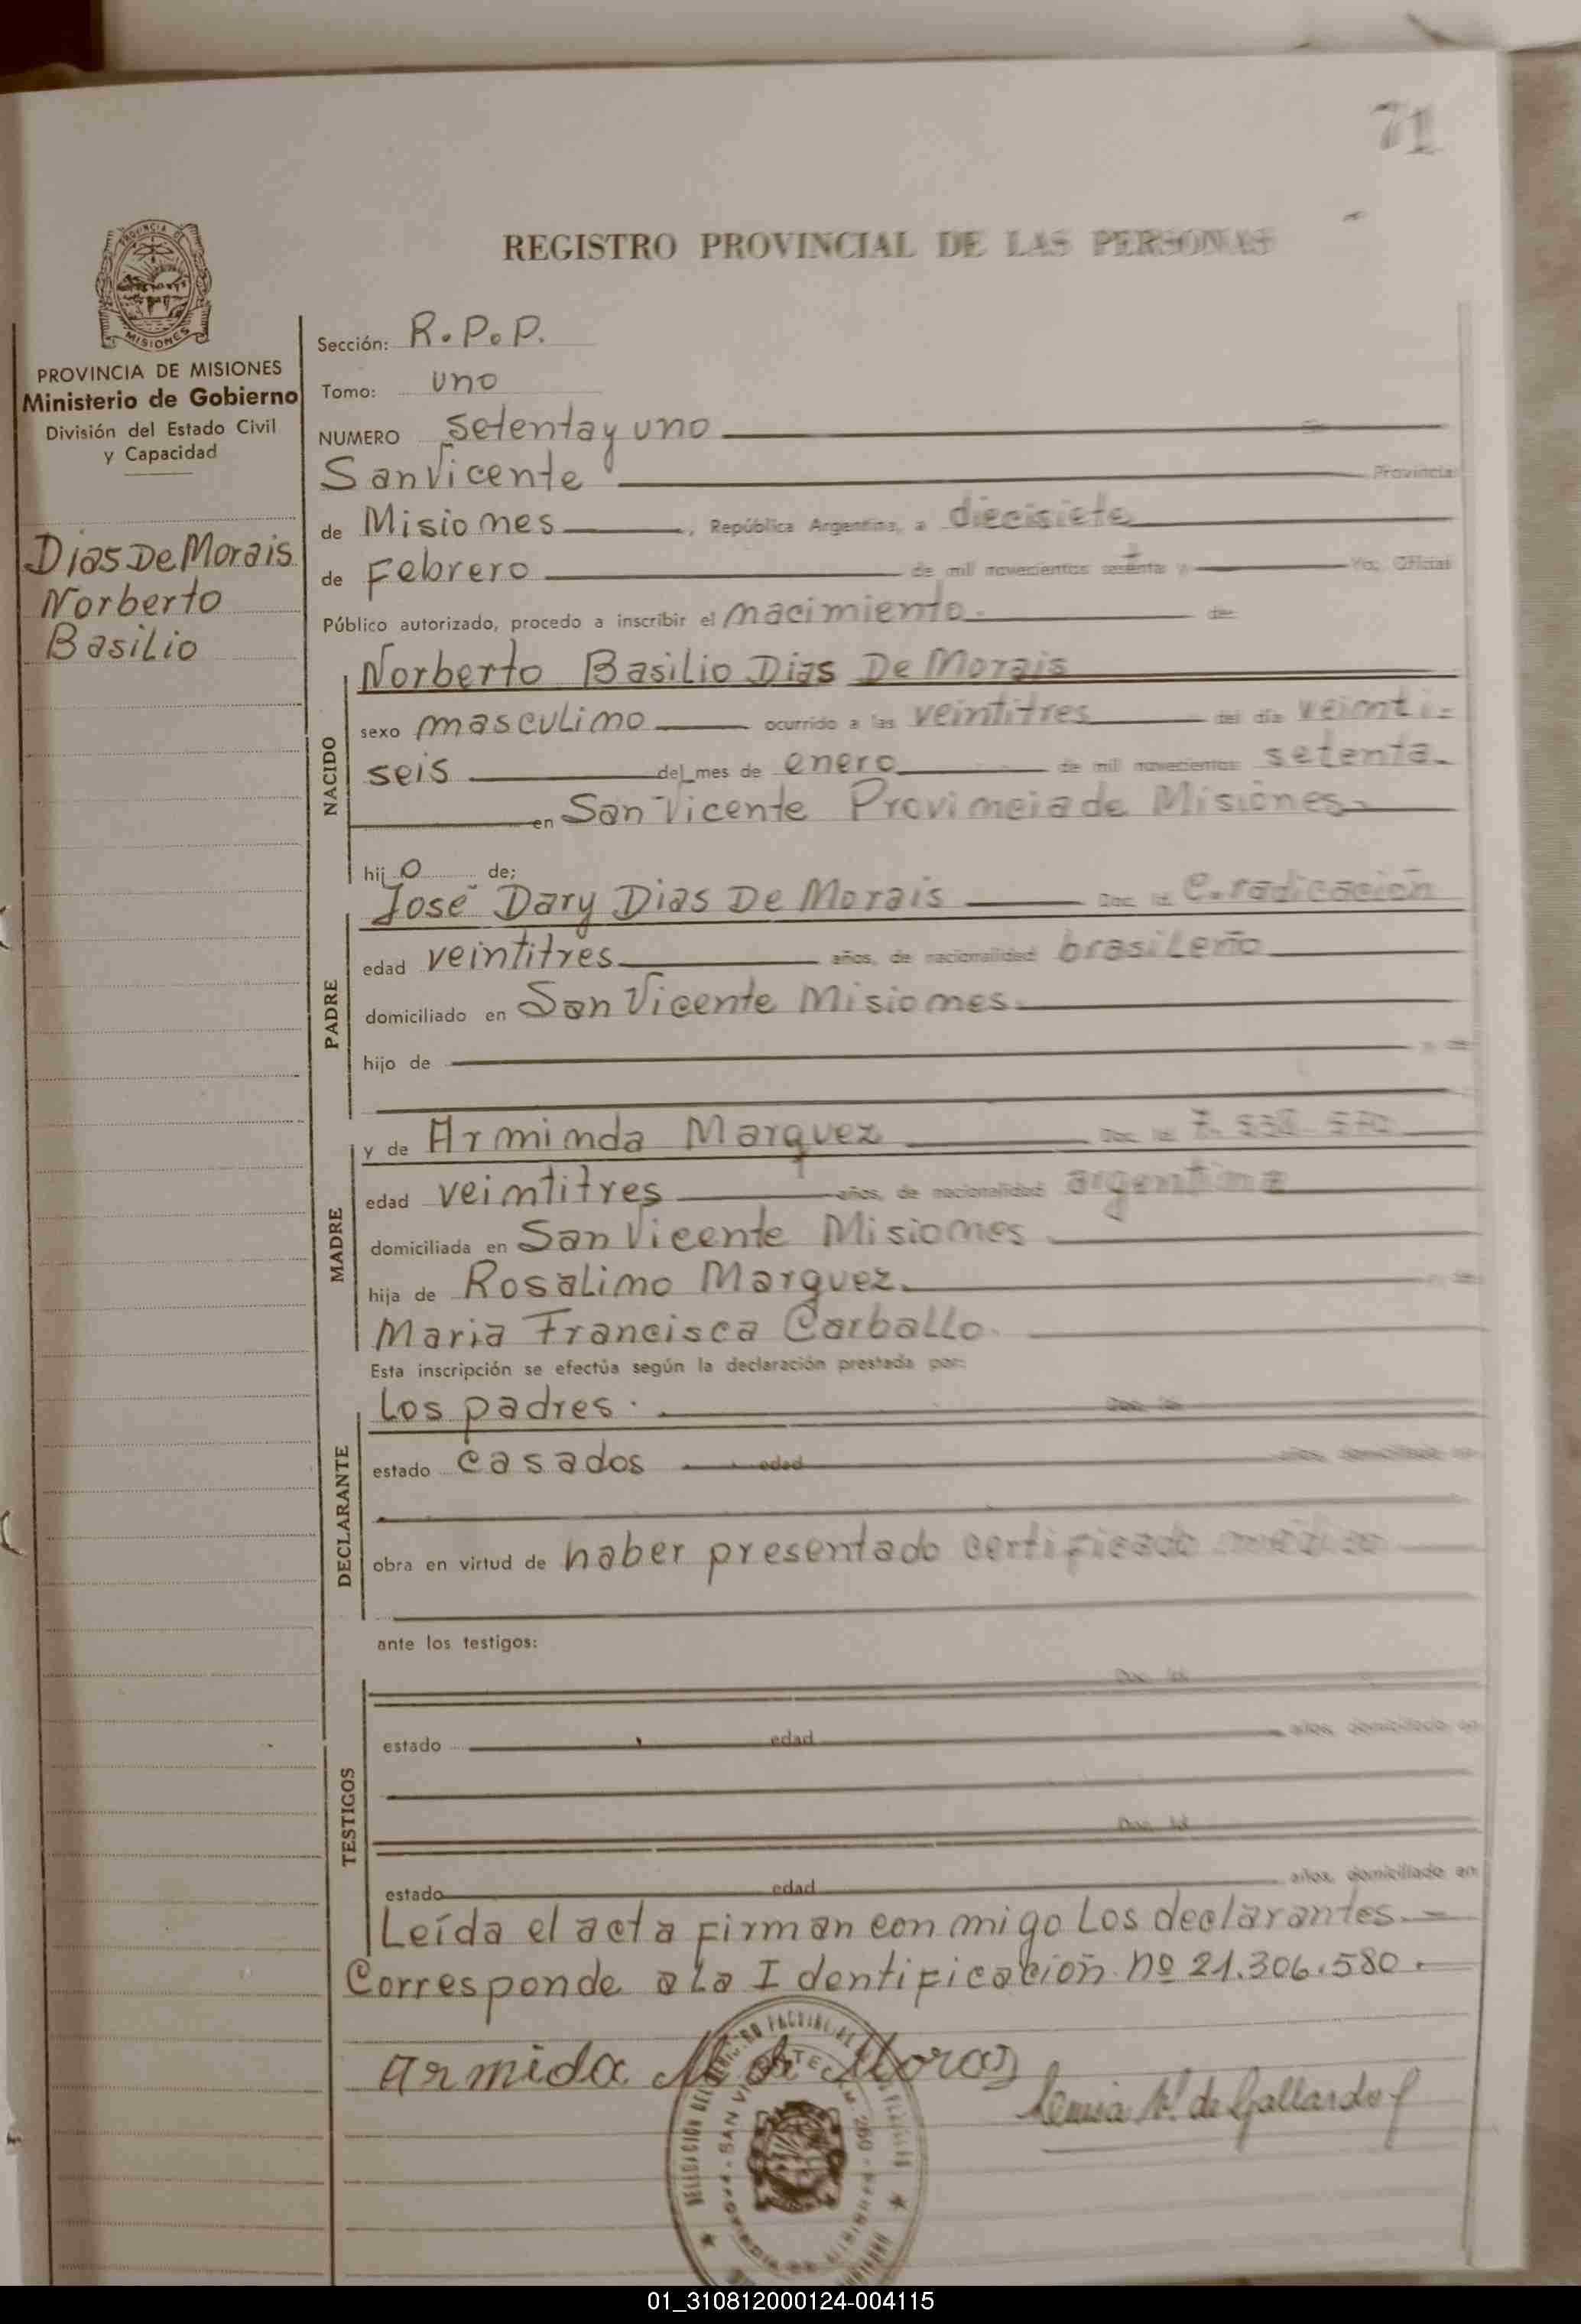 71
REGISTRO PROVINCIAL DE LAS PERSONAS
PROVINCIA DE MISIONES
Ministerio de Gobierno
División del Estado Civil
y Capacidad
Dias De Morais
Norberto
Basilio
Sección: R.P.P.
Tomo: uno
NUMERO setenta y uno
San Vicente Provincia
de Misiones, República Argentina, a diecisiete
de Febrero de mil novecientos setenta y Yo, Oficial
Público autorizado, procedo a inscribir el nacimiento de
NACIDO
Norberto Basilio Dias De Morais
sexo masculino ocurrido a las veintitres del día veinti-
seis del mes de enero de mil novecientos setenta.
en San Vicente Provincia de Misiones.
hijo de;
PADRE
José Dary Dias De Morais Doc. Id. C. radicación
edad veintitres años, de nacionalidad brasileño
domiciliado en San Vicente Misiones.
hijo de y de
MADRE
y de Arminda Marquez Doc. Id. 7.
edad veintitres años, de nacionalidad argentina
domiciliada en San Vicente Misiones
hija de Rosalino Marquez. y de
Maria Francisca Carballo.
Esta inscripción se efectúa según la declaración prestada por:
DECLARANTE
Los padres. Doc. Id.
estado casados edad años, domiciliado en
obra en virtud de haber presentado certificado médico
ante los testigos:
TESTIGOS
Doc. Id.
estado edad años, domiciliado en
Doc. Id.
estado edad años, domiciliado en
Leída el acta firman conmigo Los declarantes.-
Corresponde a La Identificación nº 21.306.580.
Armida M. de Moras
de Gallardo
01_310812000124-004115